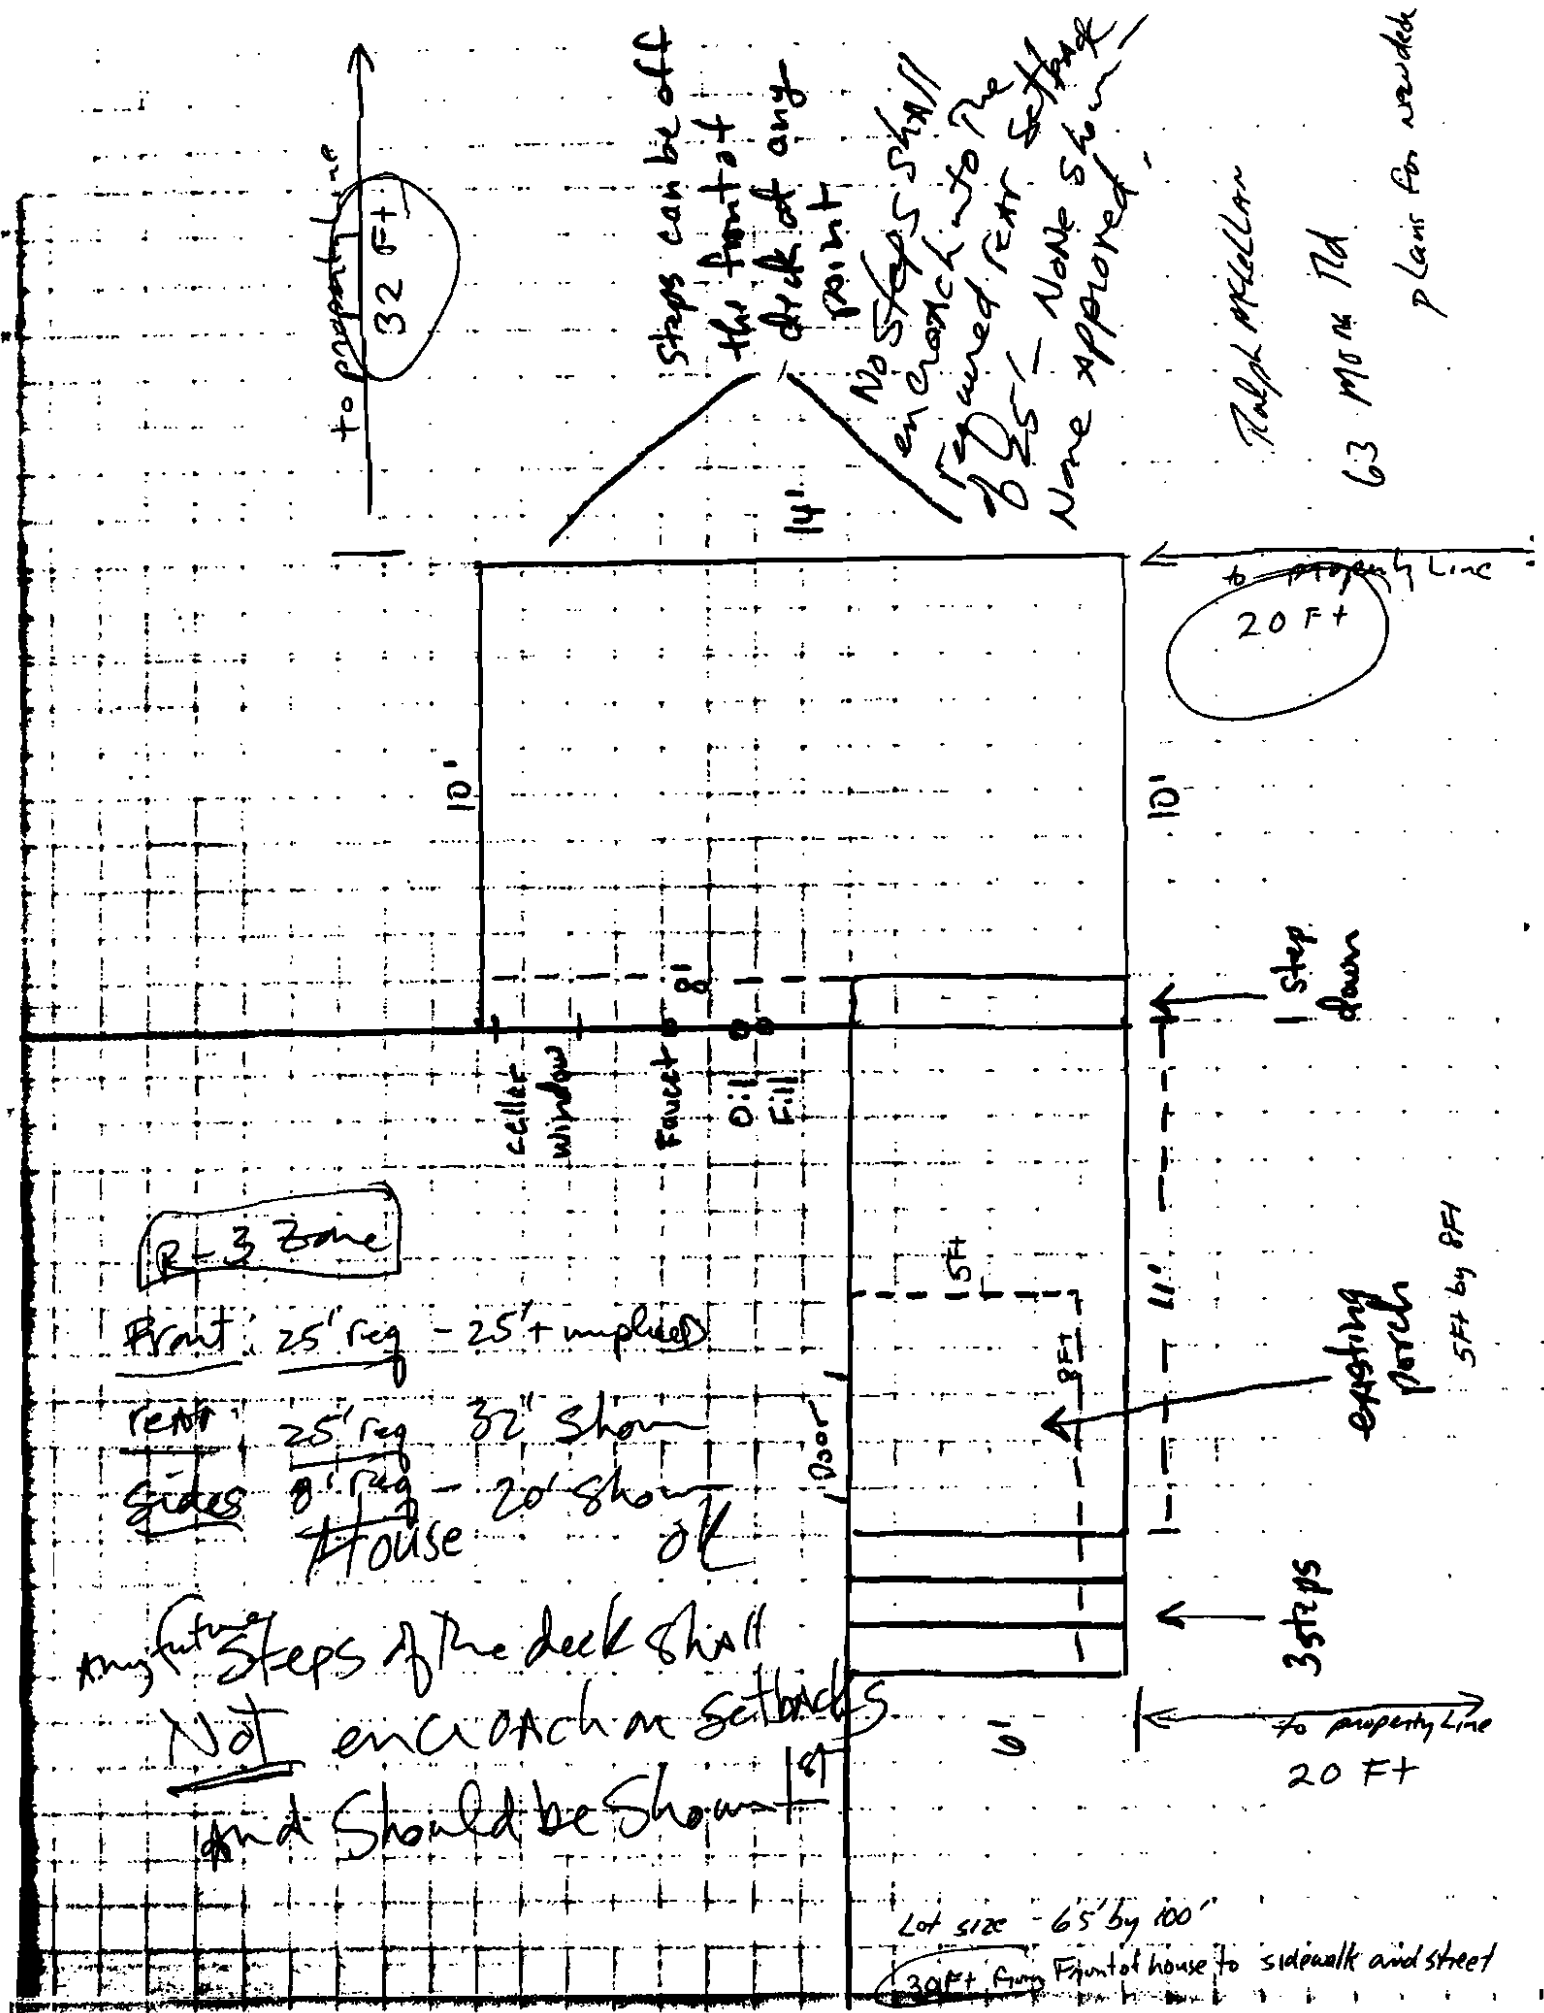 to property Line
32 Ft
Steps can be off
the front of
deck at any
point
No Steps Shall
encroach into The
required rear Setback
of 25' - None Shown,
None approved.
Ralph McLellan
63 Rd
plans for new deck
14'
to property Line
20 Ft
10'
10'
8'
1 step
down
celler
window
Faucet
Oil
Fill
R-3 Zone
Front: 25' req - 25'+ implied
rear: 25' req 32" Shown
Sides 8' req - 20' Shown
House OK
5Ft
8Ft
Door
11'
existing
porch
5Ft by 8Ft
Any future Steps of The deck Shall
Not encroach on Setbacks
And Should be Shown 1st
3 steps
6'
to property Line
20 Ft
Lot size - 65' by 100'
30Ft from Front of house to sidewalk and street